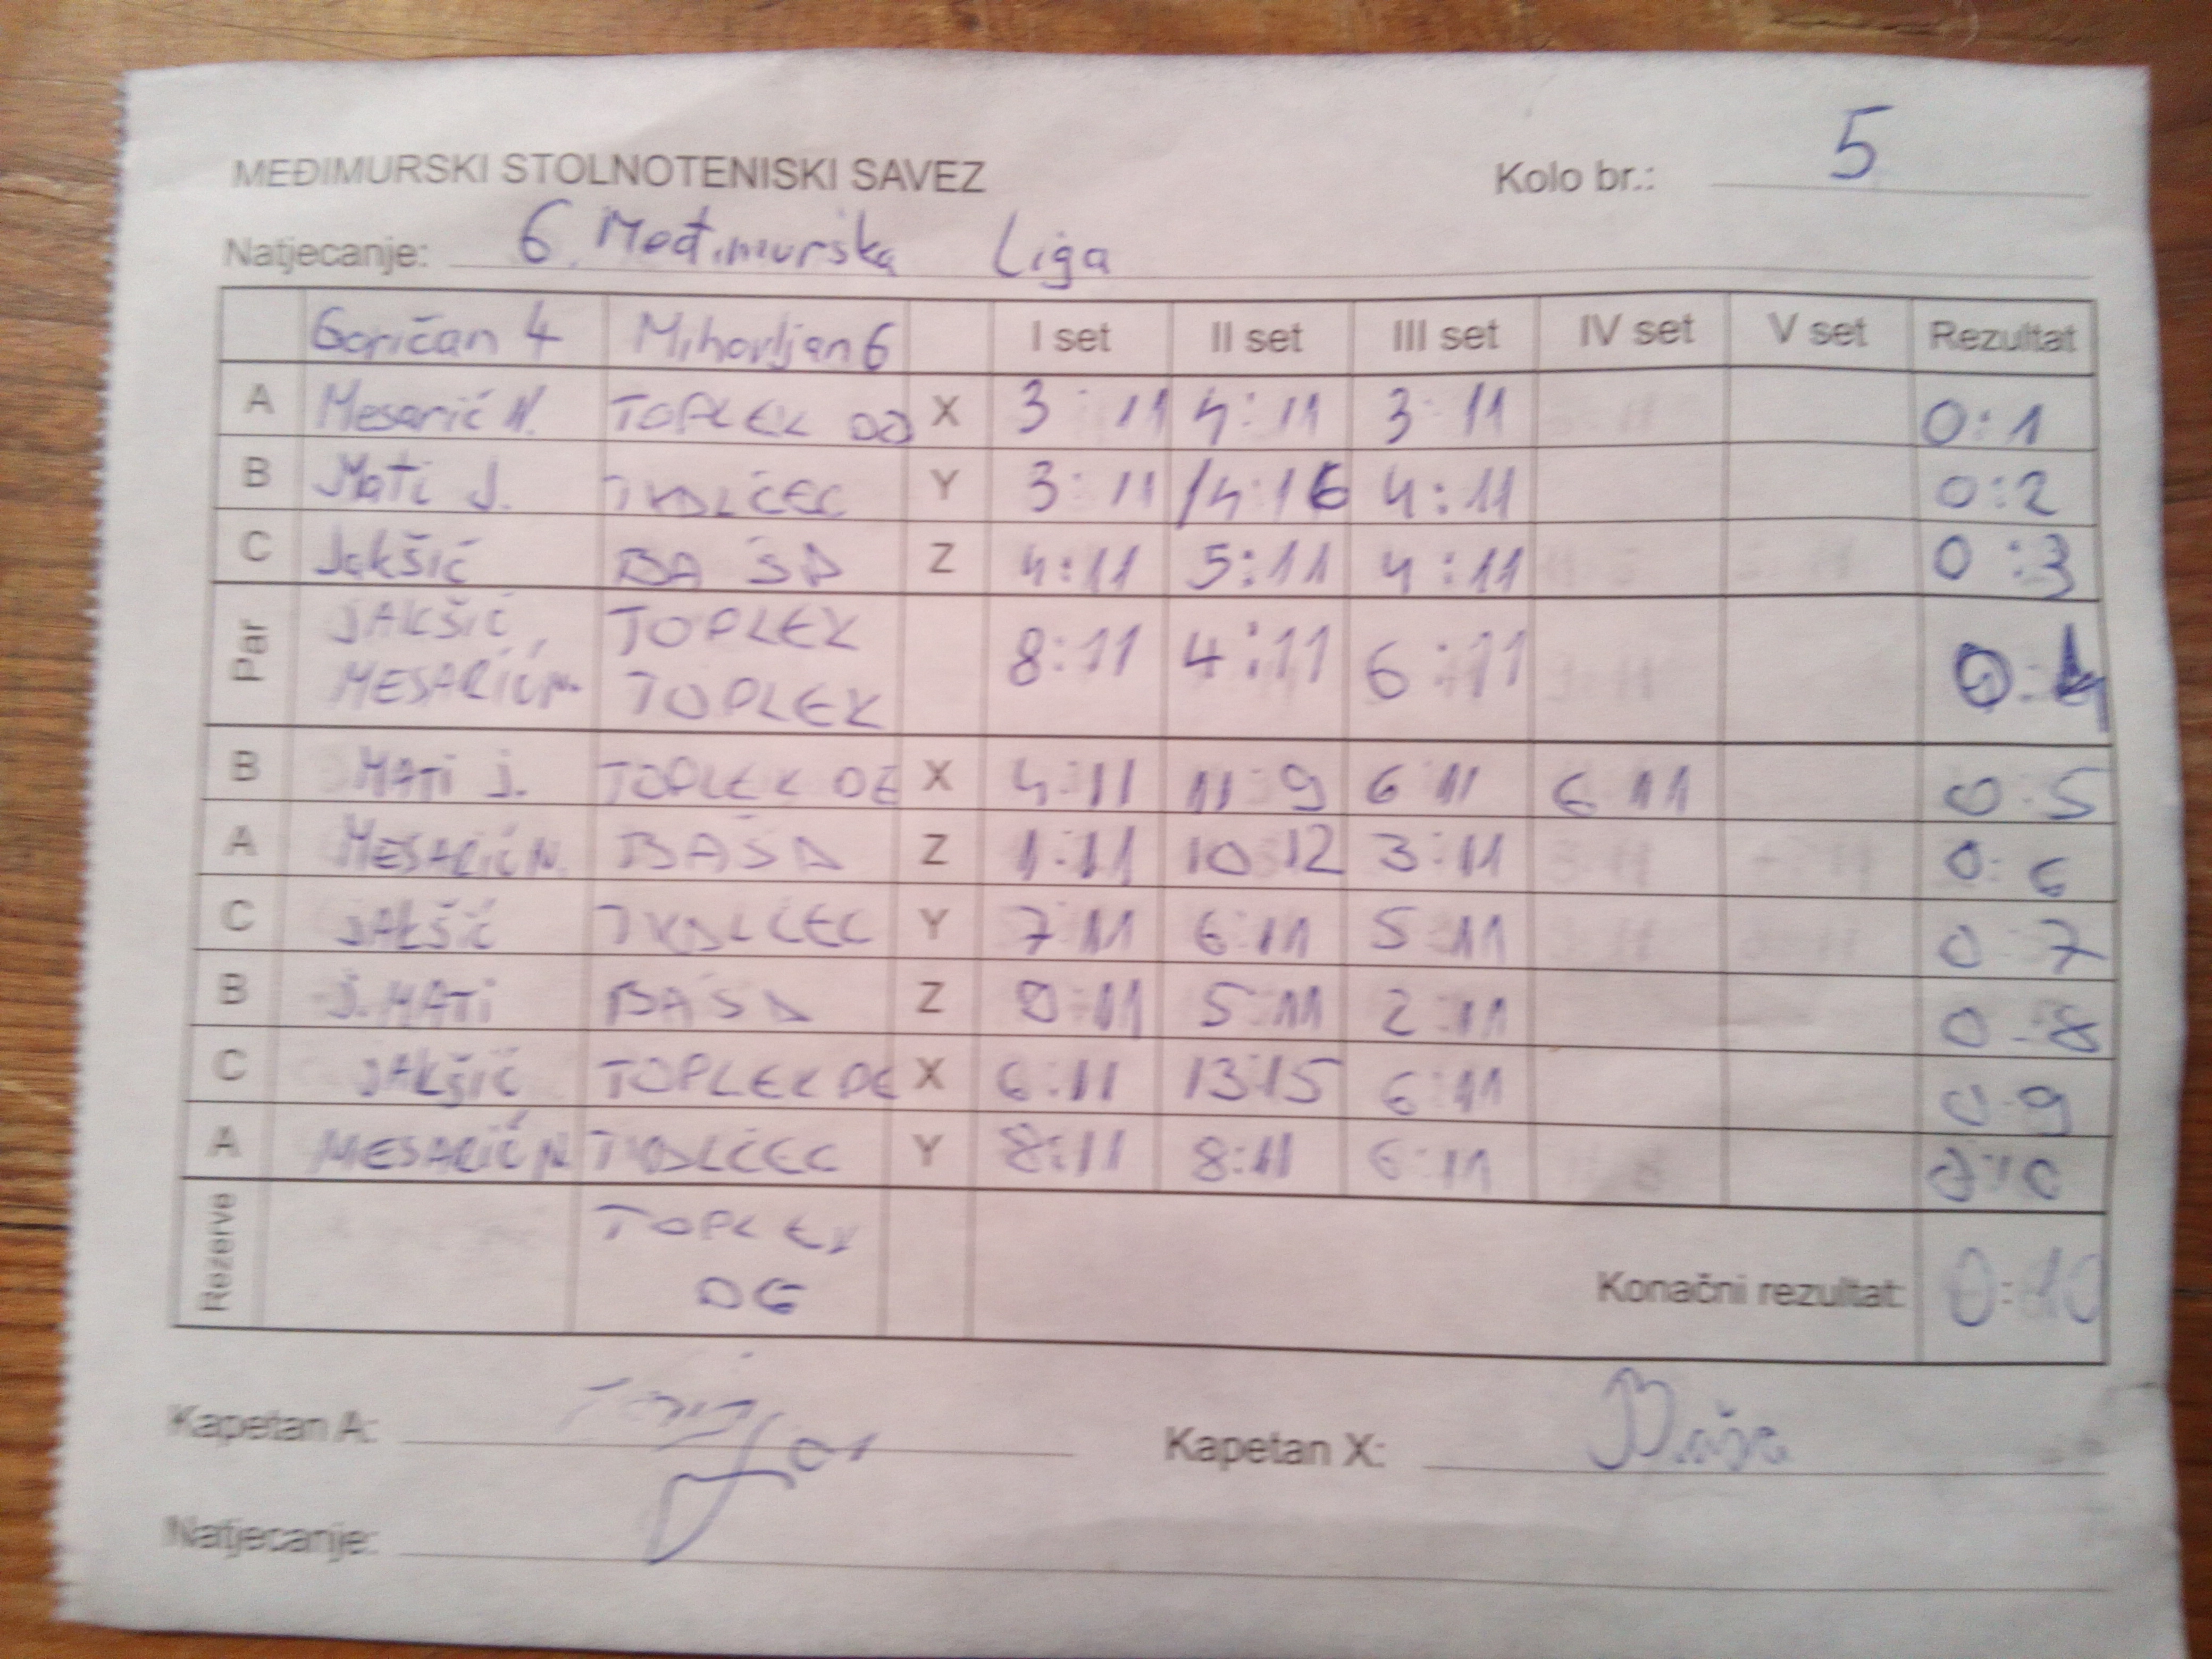 MEĐIMURSKI STOLNOTENISKI SAVEZ Kolo br.: 5
Natjecanje: 6. Međimurska Liga
Goričan 4 Mihovljan 6 I set II set III set IV set V set Rezultat
A Mesarić N. TOPLEK X 3:11 4:11 3:11 0:1
B Mati J. Y 3:11 14:16 4:11 0:2
C Jakšić BAŠA Z 4:11 5:11 4:11 0:3
Par JAKŠIĆ, TOPLEK 8:11 4:11 6:11 0:4
MESARIĆ N. TOPLEK
B MATI J. TOPLEK DE X 4:11 11:9 6 11 6 11 0:5
A MESARIĆ N. BAŠA Z 1:11 10 12 3:11 0:6
C JAKŠIĆ Y 7:11 6:11 5:11 0:7
B J. MATI BAŠA Z 0:11 5:11 2:11 0:8
C JAKŠIĆ TOPLEK DE X 6:11 13:15 6:11 0:9
A MESARIĆ N. Y 8:11 8:11 6:11
Rezerve TOPLEK
Konačni rezultat: 0:10
Kapetan A: Kapetan X: Baša
Natjecanje: